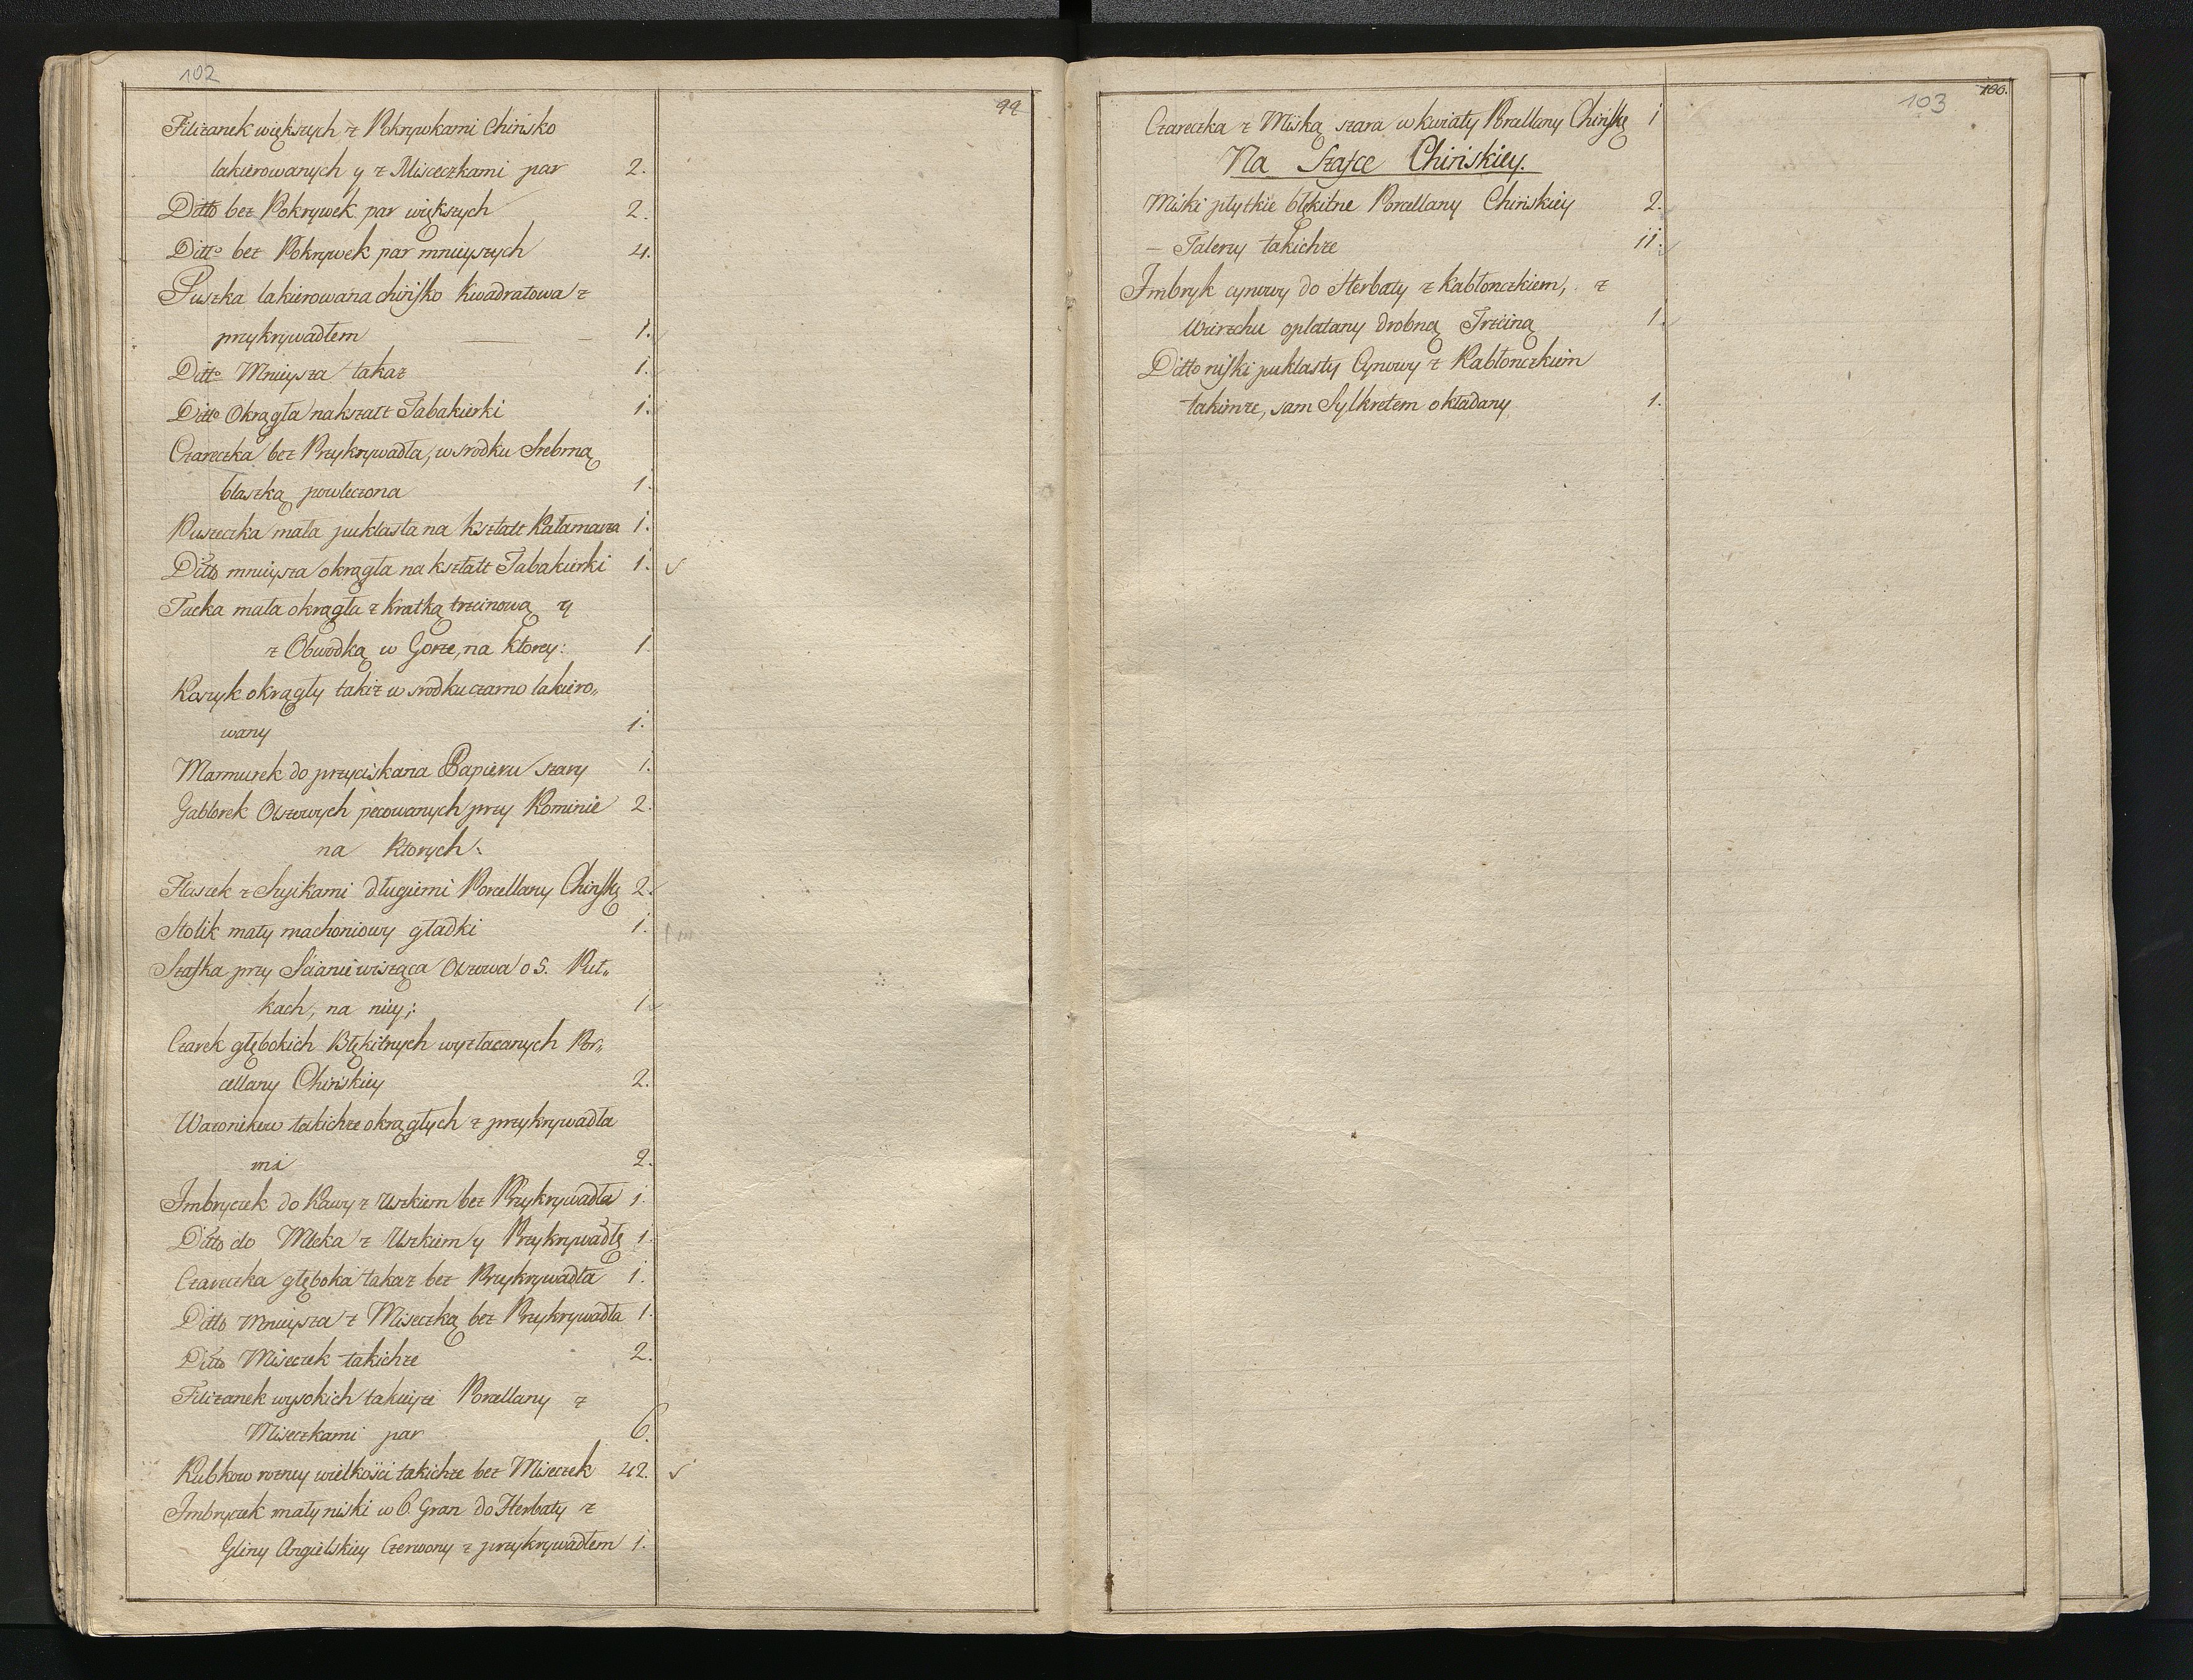 102
99
Filiżanek większych z Pokrywkami Chińsko
lakierowanych y z Miseczkami par 2.
Ditto bez Pokrywek par większych 2.
Ditto bez Pokrywek par mnieyszych 4.
Puszka lakierowana chińsko Kwadratowa z
przykrywadłem 1.
Ditto Mnieysza takaż 1.
Ditto Okrągła na kształt Tabakierki 1.
Czareczka bez Przykrywadła, w srodku Srebrną
blaszką powleczona 1.
Puszeczka mała puklasta na kształt Kałamarza 1.
Ditto mnieysza okrągła na kształt Tabakierki 1.
Tacka mała okrągła z kratką trzcinową y
z Obwodką w Gorze, na ktorey: 1
Koszyk okrągły takiż w srodku czarno lakiero„
wany 1.
Marmurek do przyciskania Papieru szary 1.
Gablotek Olszowych pecowanych przy Kominie 2.
na Ktorych:
Flaszek z Szyikami długiemi Porcellany Chińskę 2.
Stolik mały machoniowy gładki 1.
Szafka przy Ścianie wisząca Olszowa o 5. Puł„
kach, na niey; 1
Czarek głębokich Błękitnych wyzłacanych Por„
cellany Chińskiey 2.
Wazonikow takichże okrągłych z przykrywadła
mi 2.
Imbryczek do Kawy z Uszkiem bez Przykrywadła 1.
Ditto do Mleka z Uszkiem y Przykrywadłę 1.
Czareczka głęboka takaż bez Przykrywadła 1.
Ditto Mnieysza z Miseczką bez Przykrywadła 1.
Ditto Miseczek takichże 2.
Filiżanek wysokich takieyże Porcellany z
Miseczkami par 6.
Kubkow rozney wielkości takichże bez Miseczek 42.
Imbryczek mały niski w 6. Gran do Herbaty z
Gliny Angielskiey Czerwony z przykrywadłem 1.
103
100.
Czareczka z Miską szara w kwiaty Porcellany Chińskę 1
Na Szafce Chińskiey.
Miski płytkie błękitne Porcellany Chińskiey 2.
– Talerzy takichże 11.
Imbryk cynowy do Herbaty z kabłonczkiem, z
Wierzchu oplatany drobną Trzciną 1.
Ditto niski puklasty Cynowy z Kabłonczkiem
takimże, sam Sylkretem okładany 1.